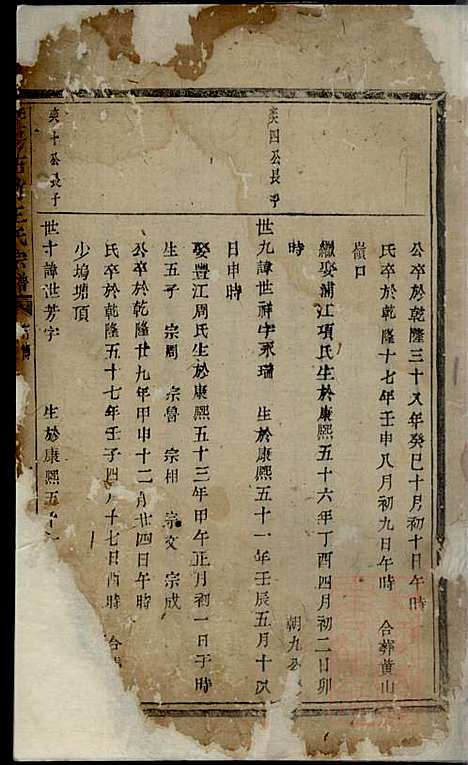 公卒於乾隆三十八年癸巳十月初十日午時
氏卒於乾隆十七年壬申八月初九日午時 合葬黄山
嶺口
繼娶浦江項氏生於康熙五十六年丁酉四月初二日卯
時 朝九公
英四公長子
世九諱世祥字永瑞 生於康熙五十一年壬辰五月十八
日申時
娶豐江周氏生於康熙五十三年甲午正月初一日子時
生五子 宗周 宗魯 宗相 宗文 宗成
公卒於乾隆廿九年甲申十二月廿四日午時
氏卒於乾隆五十七年壬子四月十七日酉時 合
少塢塘頂
英十公長子
世十諱世芳字 生於康熙五十
王氏宗譜